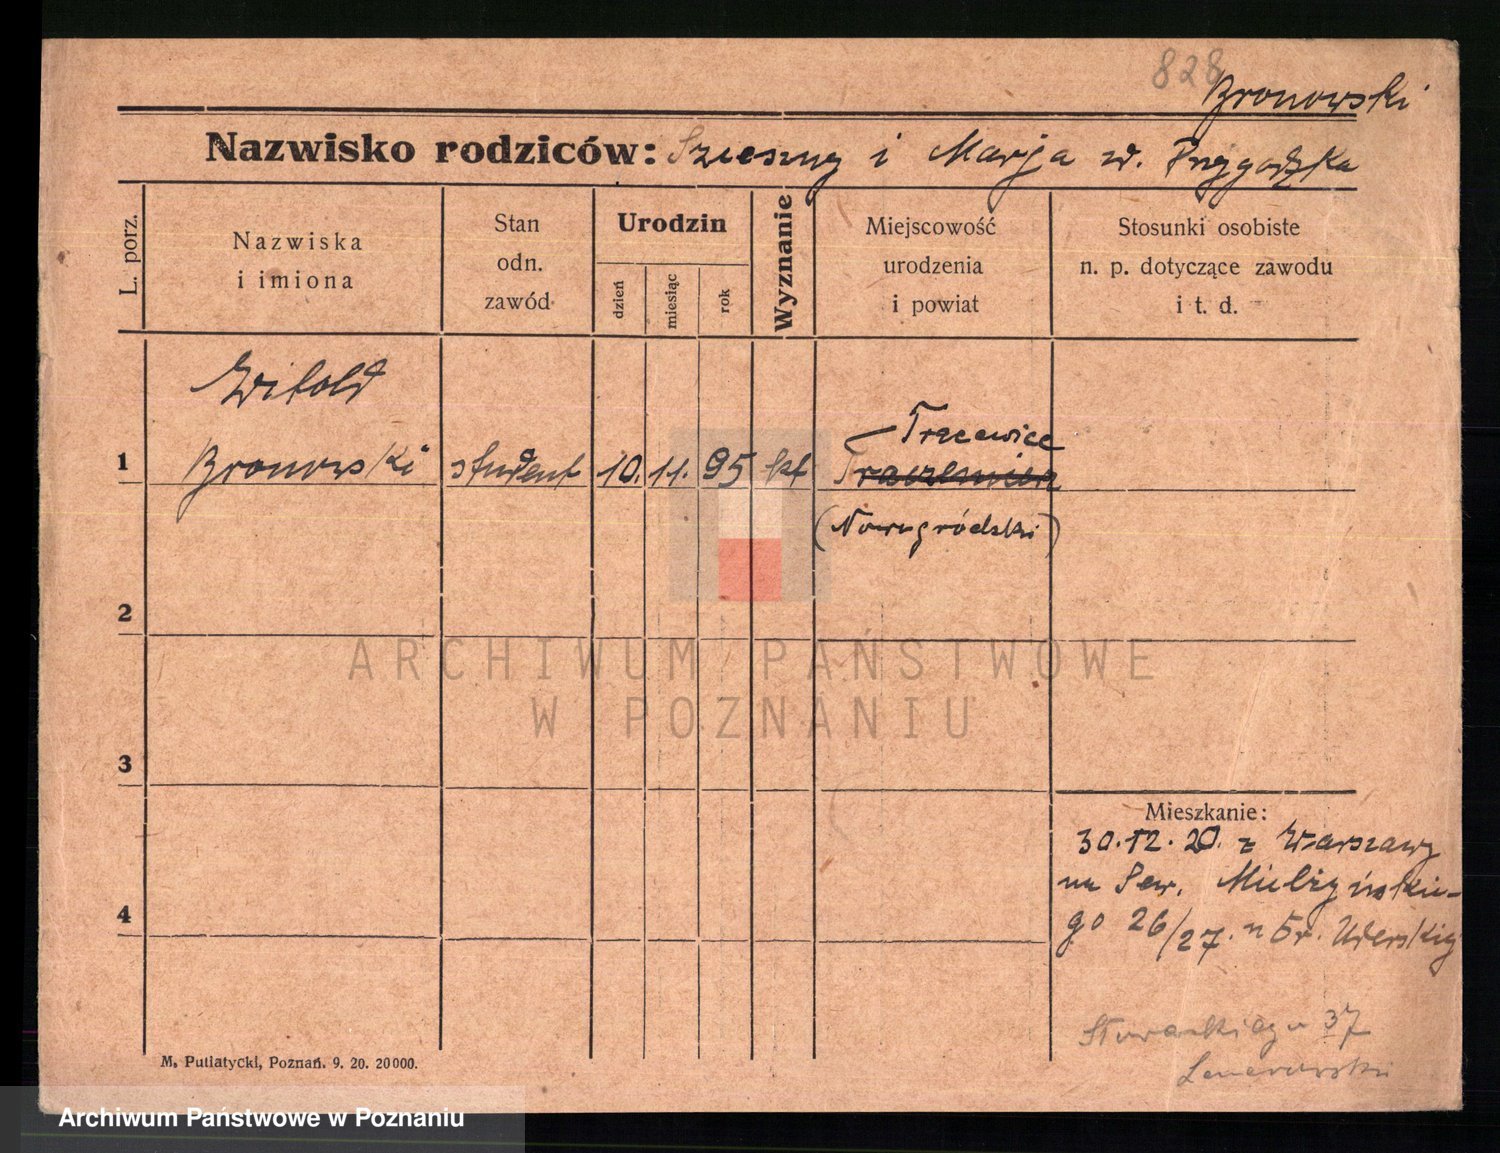 828
Bronowski
Nazwisko rodziców: Szczesny i Marja z d. Przygodzka
L. porz.
Nazwiska i imiona
Stan odn. zawód
Urodzin
dzień
miesiąc
rok
Wyznanie
Miejscowość urodzenia i powiat
Stosunki osobiste n. p. dotyczące zawodu i t. d.
Witold
Tracewice
1 Bronowski student 10. 11. 95 kt
(Nowogródski)
2
3
4
Mieszkanie:
30.12.20. z Warszawy
na Sew. Mielżyńskie-
go 26/27. u
37
M. Putiatycki, Poznań. 9. 20. 20000.
ARCHIWUM PAŃSTWOWE
W POZNANIU
Archiwum Państwowe w Poznaniu